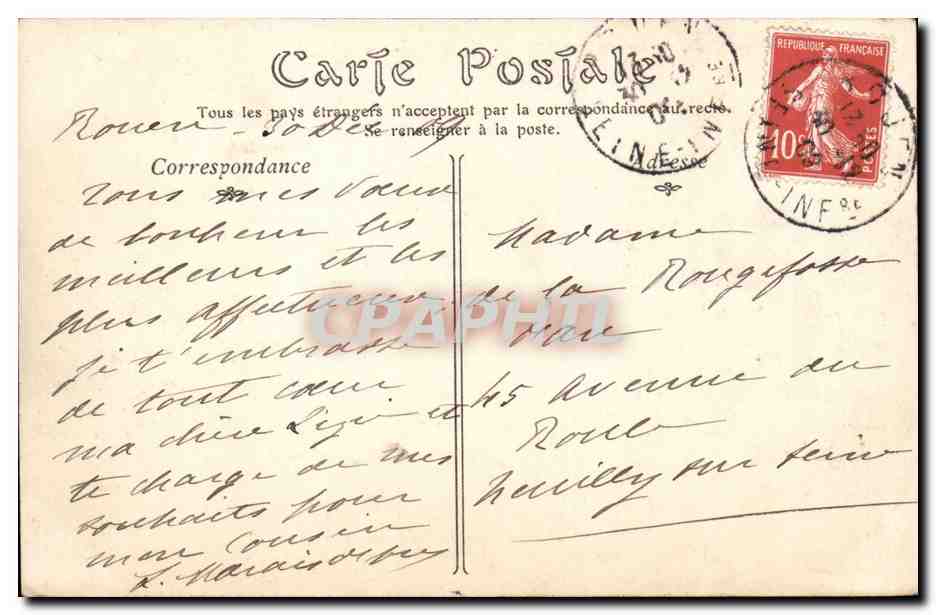 Carte Postale
Tous les pays étrangers n'acceptent par la correspondance au recto.
Se renseigner à la poste.
Rouen - 30 Dec
Correspondance
Adresse
Tous mes Vœux
de bonheur les
meilleurs et les
plus affectueux
je t'embrasse
de tout cœur
ma chère et
te charge de mes
souhaits pour
mon Cousin
L. Marais
Madame
de la Rougefosse
45 Avenue du
Roule
Neuilly sur Seine
REPUBLIQUE FRANÇAISE
10c
POSTES
ROUEN
SEINE-INFRE
CPAPHΠ